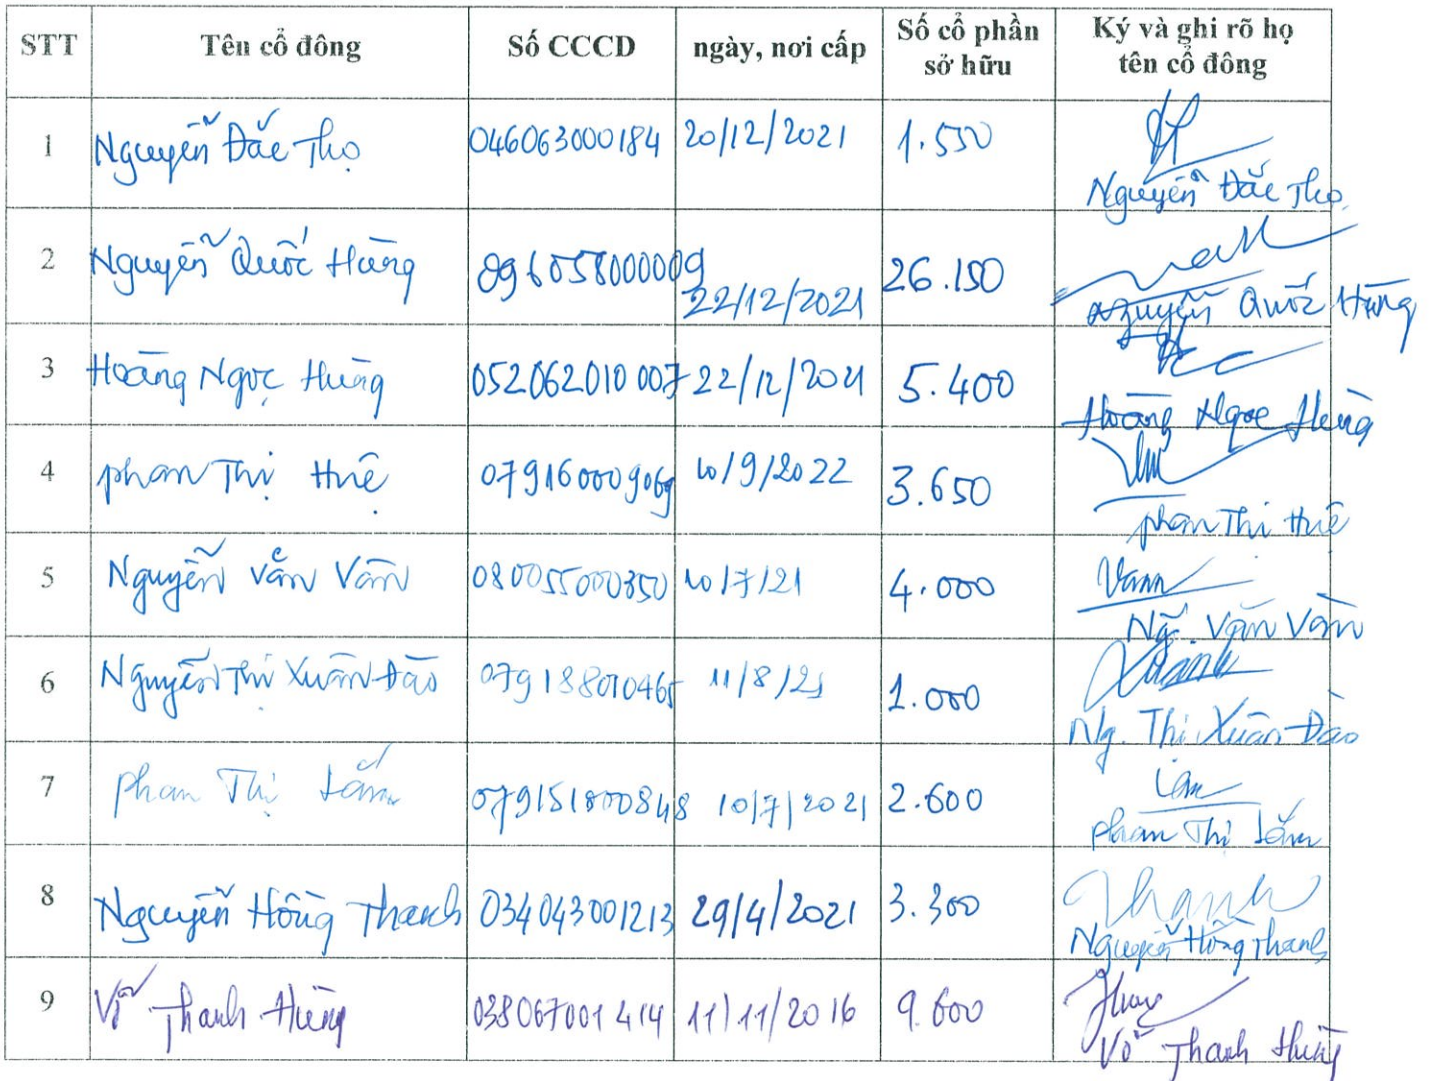 STT Tên cổ đông Số CCCD ngày, nơi cấp Số cổ phần sở hữu Ký và ghi rõ họ tên cổ đông
1 Nguyễn Đắc Thọ 046063000184 20/12/2021 1.550
Nguyễn Đắc Thọ
2 Nguyễn Quốc Hùng 096058000009 22/12/2021 26.150
Nguyễn Quốc Hùng
3 Hoàng Ngọc Hùng 052062010007 22/12/2021 5.400
Hoàng Ngọc Hùng
4 Phan Thị Huê 079160009069 10/9/2022 3.650
Phan Thị Huê
5 Nguyễn Văn Vân 080055000350 10/7/21 4.000
Ng. Văn Vân
6 Nguyễn Thị Xuân Đào 079188010465 11/8/21 1.000
Ng. Thị Xuân Đào
7 Phan Thị Lắm 079151800848 10/7/2021 2.600
Phan Thị Lắm
8 Nguyễn Hồng Thanh 034043001213 29/4/2021 3.300
Thanh
Nguyễn Hồng Thanh
9 Võ Thanh Hùng 038067001414 11/11/2016 9.600
Võ Thanh Hùng